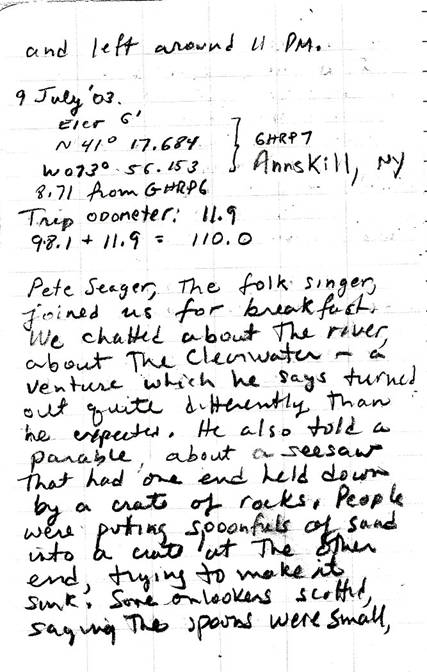 and left around 11 PM.
9 July '03.
Elev 6'
N 41° 17.684
W 073° 56.153
GHRP7
Annskill, NY
8.71 from GHRP6
Trip odometer: 11.9
98.1 + 11.9 = 110.0
Pete Seager, The folk singer,
joined us for breakfast.
We chatted about The river,
about The Clearwater – a
venture which he says turned
out quite differently Than
he expected. He also told a
parable, about a seesaw
That had one end held down
by a crate of rocks. People
were puting spoonfuls of sand
into a crate at The other
end, trying to make it
sink. Some onlookers scoffed,
saying The spoons were small,